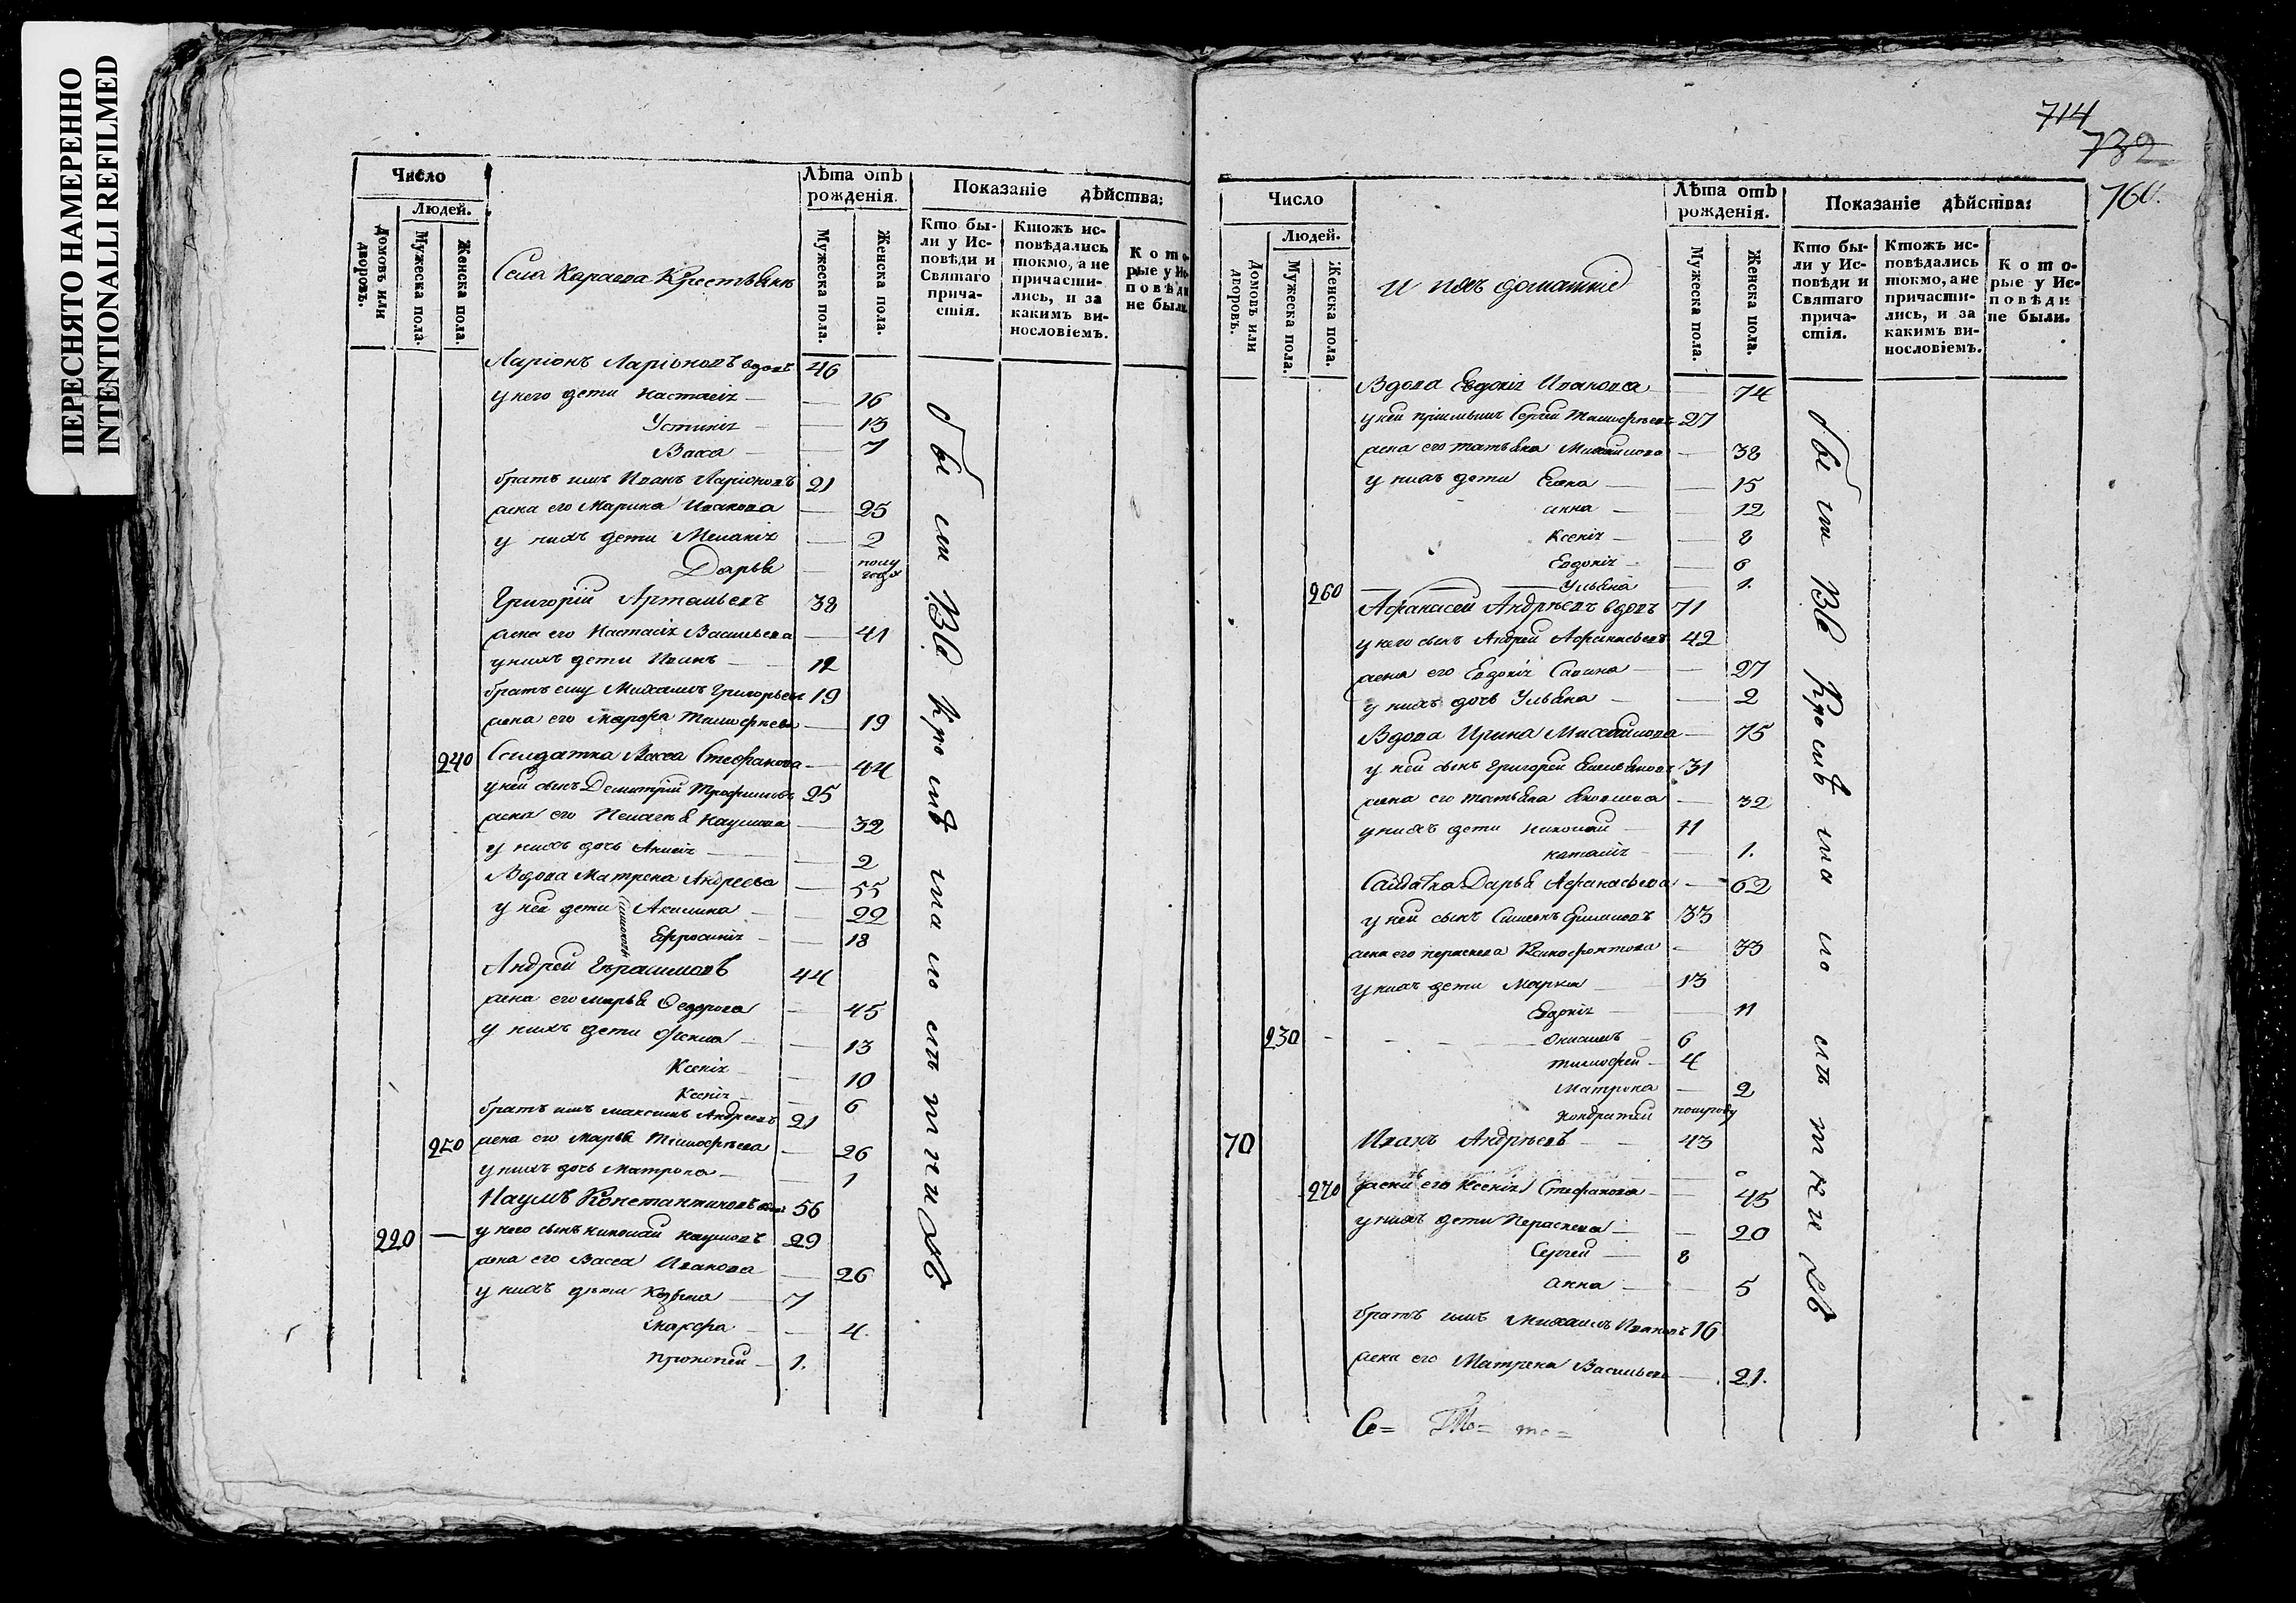 ПЕРЕСНЯТО НАМЕРЕННО
INTENTIONALLI REFILMED
Число
Людей.
Домовъ или дворовъ.
Мужеска пола.
Женска пола.
Села Караева Крестьянъ
Лѣта отъ рожденія.
Мужеска пола.
Женска пола.
Показаніе дѣйства:
Кто бы-
ли у Ис-
повѣди и
Святаго
прича-
стія.
Ктожъ ис-
повѣдались
токмо, а не
причасти-
лись, и за
какимъ ви-
нословіемъ.
Кото-
рые у Ис-
повѣди
не были.
Ларіонъ Ларіоновъ вдовъ 46
у него дети Настасія — 16
Устинія — 13
Васса — 7
братъ имъ Иванъ Ларіоновъ 21
жена его Марина Иванова — 25
у нихъ дети Меланія — 2
Дарья — полу года
Григорій Артамьевъ 38
жена его Настасія Васильева — 41
у нихъ дети Иванъ — 12
братъ ему Михаилъ Григорьевъ 19
жена его Марфа Тимофеева — 19
240 Солдатка Васса Стефанова — 44
у ней сынъ Демитрій Трофимовъ 25
жена его Пелагея Наумова — 32
у нихъ дочь Анисія — 2
Вдова Матрена Андреева — 55
у ней дети Акилина — 22
Ефросинія — 18
Андрей Герасимовъ 44
жена его Марья Федорова — 45
у нихъ дети Фекла — 13
Ксенія — 10
Ксенія — 6
братъ имъ Максимъ Андреевъ 21
250 жена его Марья Тимофѣева — 26
у нихъ дочь Матрона — 1
Наумъ Константиновъ вдовъ 56
220 — у него сынъ Николай Наумовъ 29
жена его Васса Иванова — 26
у нихъ дѣти Козьма — 7
Марфа — 4.
Прокопей — 1.
были Всѣ кромѣ малолетнихъ
714
732
760.
Число
Людей.
Домовъ или дворовъ.
Мужеска пола.
Женска пола.
и ихъ домашніе
Лѣта отъ рожденія.
Мужеска пола.
Женска пола.
Показаніе дѣйства:
Кто бы-
ли у Ис-
повѣди и
Святаго
прича-
стія.
Ктожъ ис-
повѣдались
токмо, а не
причасти-
лись, и за
какимъ ви-
нословіемъ.
Кото-
рые у Ис-
повѣди
не были.
Вдова Евдокія Иванова — 74
у ней Сергей Тимофѣевъ 27
жена его Татьяна Михайлова — 38
у нихъ дети Елена — 15
Анна — 12
Ксенія — 8
Евдокія — 6
260 — Ульяна 1.
Афанасей Андрѣевъ вдовъ 71
у него сынъ Андрей Афанасьевъ 42
жена его Евдокія Савина — 27
у нихъ дочь Ульяна — 2
Вдова Ирина Михайлова — 75
у ней сынъ Григорей Емельяновъ 31
жена его Татьяна — 32
у нихъ дети Николай — 11
Наталія — 1.
Салдатка Дарья Афанасьева — 62
у ней сынъ Симеонъ 33
жена его Пераскева Ксенофонтова — 33
у нихъ дети Маркел — 13
Евдокія — 11
230 — Онисимъ — 6
Тимофей — 4
Матрона — 2
Кондратей полугоду
70 Иванъ Андрѣевъ — 43
270 жена его Ксенія Стефанова — 45
у нихъ дети Пераскева — 20
Сергей — 8
Анна — 5
братъ имъ Михаилъ Ивановъ 16
жена его Матрена Васильева — 21.
были Всѣ кромѣ малолетнихъ